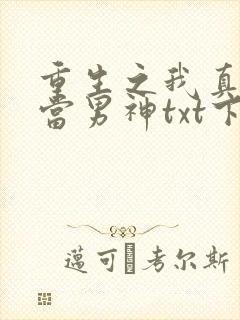 重生之我真
当男神txt下
蓮可考尔斯